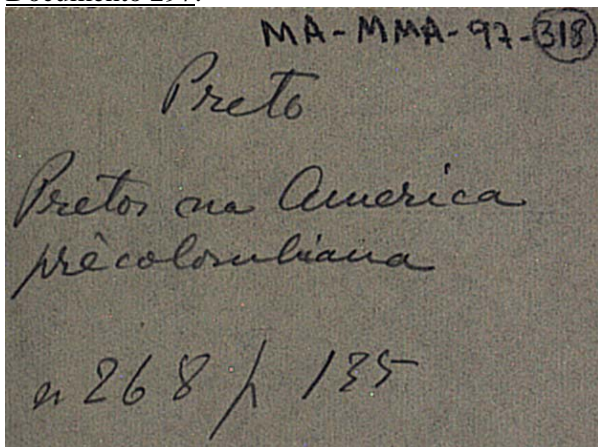 Documento 297:
MA-MMA-97-318
Preto
Pretos na America
prècolombiana
n 268 p 135